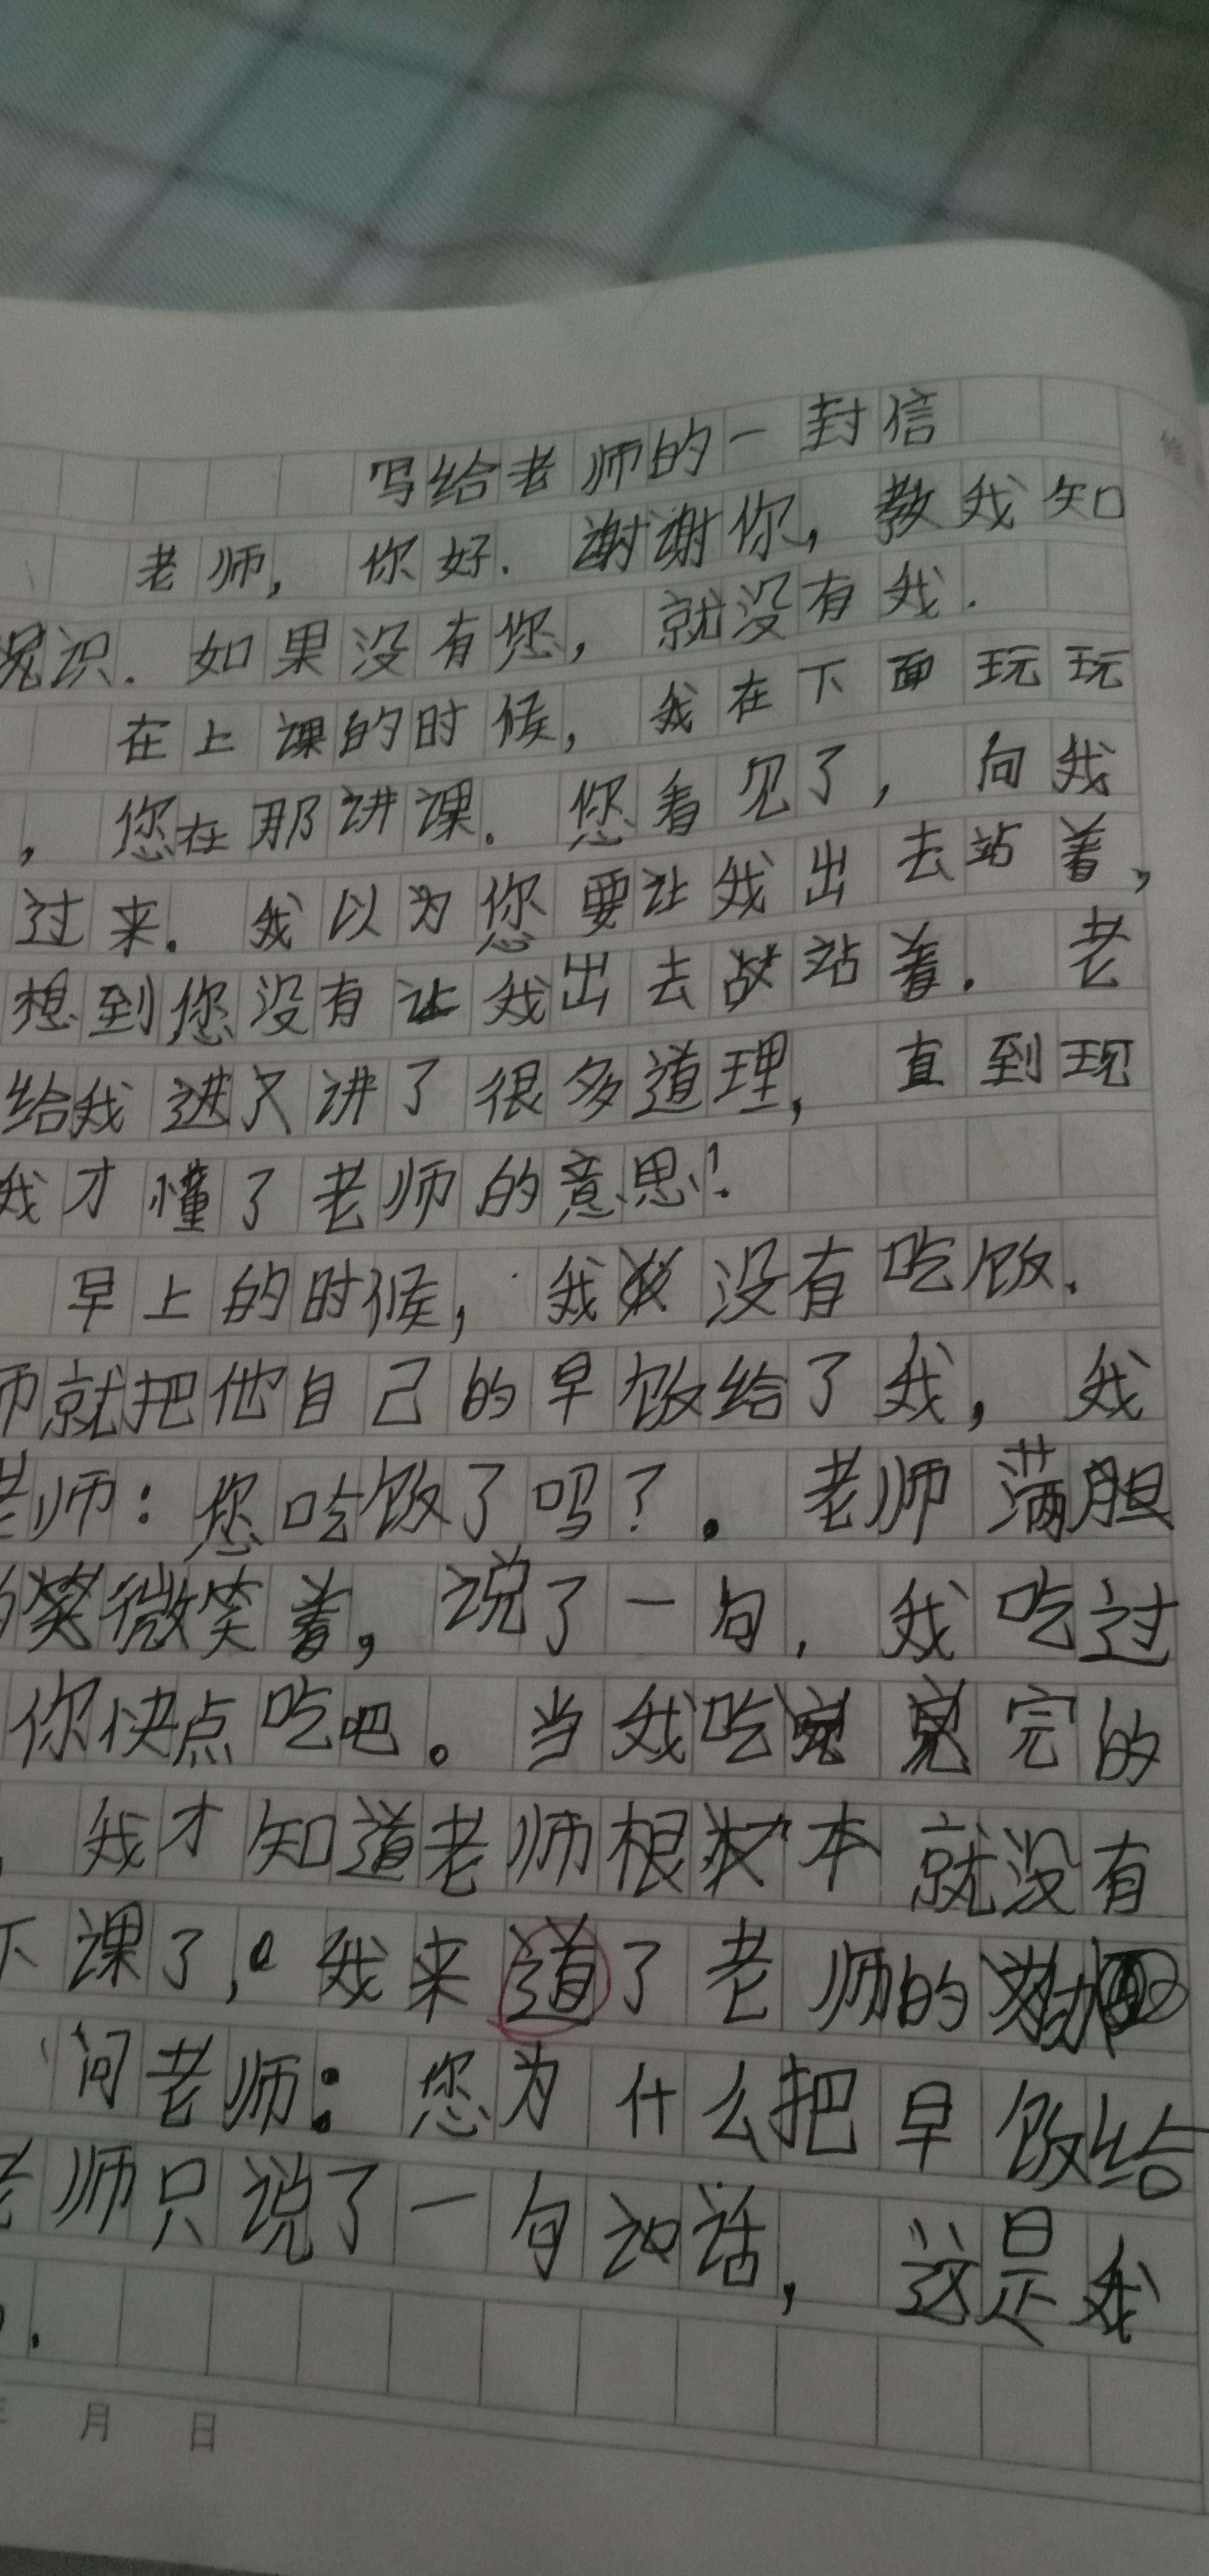 写给老师的一封信
老师，你好．谢谢你，教我知
识．如果没有您，就没有我．
在上课的时候，我在下面玩玩
，您在那讲课．您看见了，向我
过来．我以为您要让我出去站着，
想到您没有让我出去站着．老
给我讲了很多道理，直到现
我才懂了老师的意思！
早上的时候，我没有吃饭．
师就把他自己的早饭给了我，我
老师：您吃饭了吗？．老师满胆
微笑着，说了一句．我吃过
你快点吃吧。当我吃完的
，我才知道老师根本就没有
下课了，我来道了老师的
问老师：您为什么把早饭给
老师只说了一句话，这是我
．
年 月 日